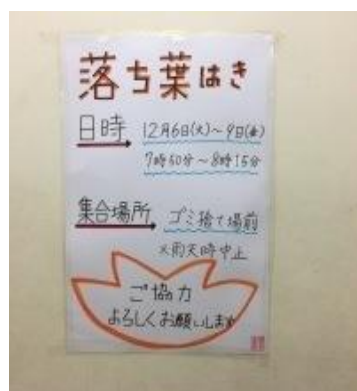 落ち葉はき
日時 12月6日(火)~9日(金)
7時50分~8時15分
集合場所 ゴミ捨て場前
※雨天時中止
ご協力
よろしくお願いします